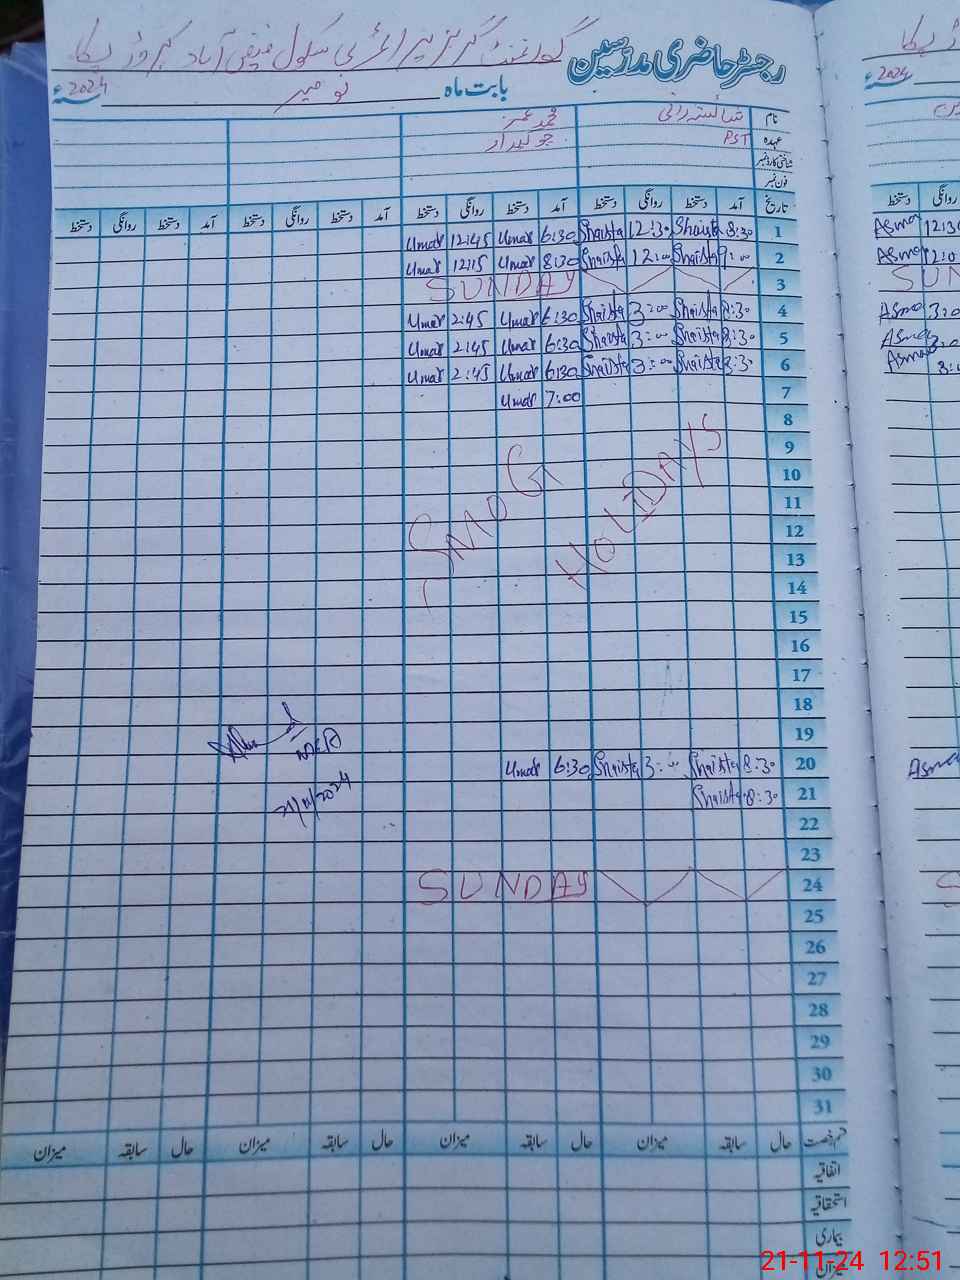 گورنمنٹ گرلز پرائمری سکول فیض آباد کہروڑ پکا
رجسٹر حاضری مدرسین
بابت ماہ نومبر 2024ء
نام شائستہ رانی محمد عمر
عہدہ PST چوکیدار
شناختی کارڈ نمبر
فون نمبر
تاریخ آمد دستخط روانگی دستخط آمد دستخط روانگی دستخط آمد دستخط روانگی دستخط آمد دستخط روانگی دستخط
1 8:30 Shaista 12:30 Shaista 6:30 Umar 12:45 Umar
2 9:00 Shaista 12:00 Shaista 8:30 Umar 12:15 Umar
3 SUNDAY
4 8:30 Shaista 3:00 Shaista 6:30 Umar 2:45 Umar
5 8:30 Shaista 3:00 Shaista 6:30 Umar 2:45 Umar
6 8:30 Shaista 3:00 Shaista 6:30 Umar 2:45 Umar
7 7:00 Umar
8
9
10
11
12
13
14
15
16
17
18
19
SMOG HOLIDAYS
20 8:30 Shaista 3:00 Shaista 6:30 Umar
21 8:30 Shaista
MEA
21/11/2024
22
23
24 SUNDAY
25
26
27
28
29
30
31
قسم رخصت حال سابقہ میزان حال سابقہ میزان حال سابقہ میزان حال سابقہ میزان
اتفاقیہ
استحقاقیہ
بیماری
میزان
2024ء
روانگی دستخط
12:30 Asma
12:0 Asma
SUN
3:0 Asma
3:0 Asma
3:0 Asma
Asma
S
21-11-24 12:51